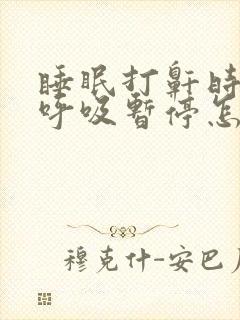 睡眠打鼾時
呼吸暫停怎
穆克什-安巴